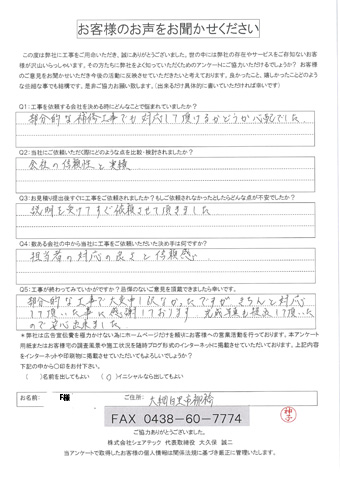 お客様のお声をお聞かせください
この度は弊社に工事をご用命いただき、誠にありがとうございました。世の中には弊社の存在やサービスをご存知ないお客様
が沢山いらっしゃいます。その方たちに弊社をよく知っていただくためのアンケートにご協力いただけるでしょうか？ お客様
のご意見をお聞かせいただき今後の活動に反映させていただきたいと考えております。良かったこと、嬉しかったことどのよう
な些細な事でも結構です。是非ご協力お願い致します。（出来るだけ具体的に書いていただければ幸いです）
Q1：工事を依頼する会社を決める時にどんなことで悩まれていましたか？
部分的な補修工事でも対応して頂けるかどうか心配でした
Q2：当社にご依頼いただく際にどのような点を比較・検討されましたか？
会社の信頼性と実績
Q3：お見積り提出後すぐに工事をご依頼されましたか？もしご依頼されなかったとしたらどんな点が不安でしたか？
説明を受けてすぐ依頼させて頂きました
Q4：数ある会社の中から当社に工事をご依頼いただいた決め手は何ですか？
担当者の対応の良さと信頼感
Q5：工事が終わってみていかがですか？忌憚のないご意見を頂戴できましたら幸いです。
部分的な工事で大変申し訳なかったですが きちんと対応
して頂いた事に感謝しております 完成写真も提出して頂いた
ので安心出来ました
＊弊社は広告宣伝費を極力かけない為にホームページだけを頼りにお客様への営業活動を行っております。本アンケート
用紙またはお客様宅での調査風景や施工状況を随時ブログ形式のインターネットに掲載させていただいております。上記内容
をインターネットや印刷物に掲載させていただいてもよろしいでしょうか？
下記の中から〇印をお付け下さい。
（ ）名前を出してもよい （〇）イニシャルなら出してもよい
お名前： F様 ご住所： 大網白里市
FAX 0438-60-7774
ご協力ありがとうございました。
株式会社シェアテック 代表取締役 大久保 誠二
当アンケートで取得したお客様の個人情報は関係法規に基づき厳正に管理いたします。